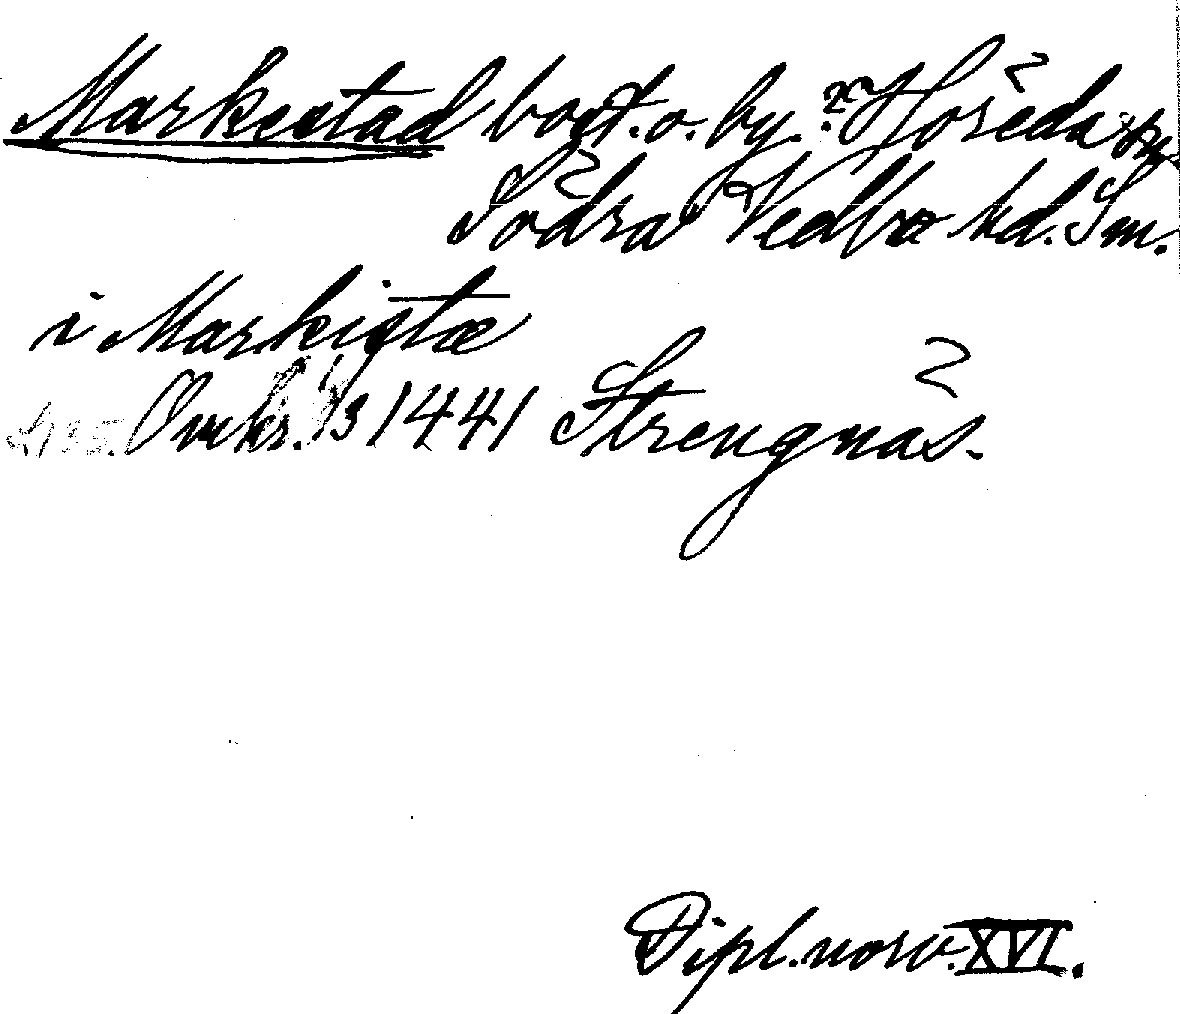 Markestad bost. o. by. ? Höreda sn
Södra Vedbo hd. Sm.
i Markistæ
Omkr. 1/3 1441 Strengnäs.
Dipl. norv. XVI.